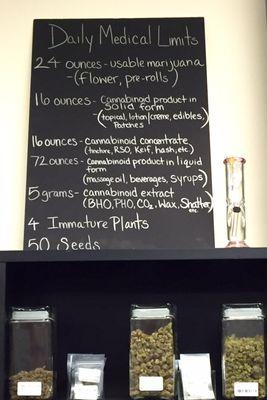 Daily Medical Limits
24 ounces - usable marijuana
-(flower, pre-rolls)
16 ounces - Cannabinoid product in
solid form
-(topical, lotion/creme, edibles,
Patches)
16 ounces - cannabinoid concentrate
(tincture, RSO, Keif, hash, etc.)
72 ounces - Cannabinoid product in liquid
form
(massage oil, beverages, Syrups)
5 grams - cannabinoid extract
(BHO, PHO, CO2, Wax, Shatter)
etc.
4 Immature Plants
50 Seeds